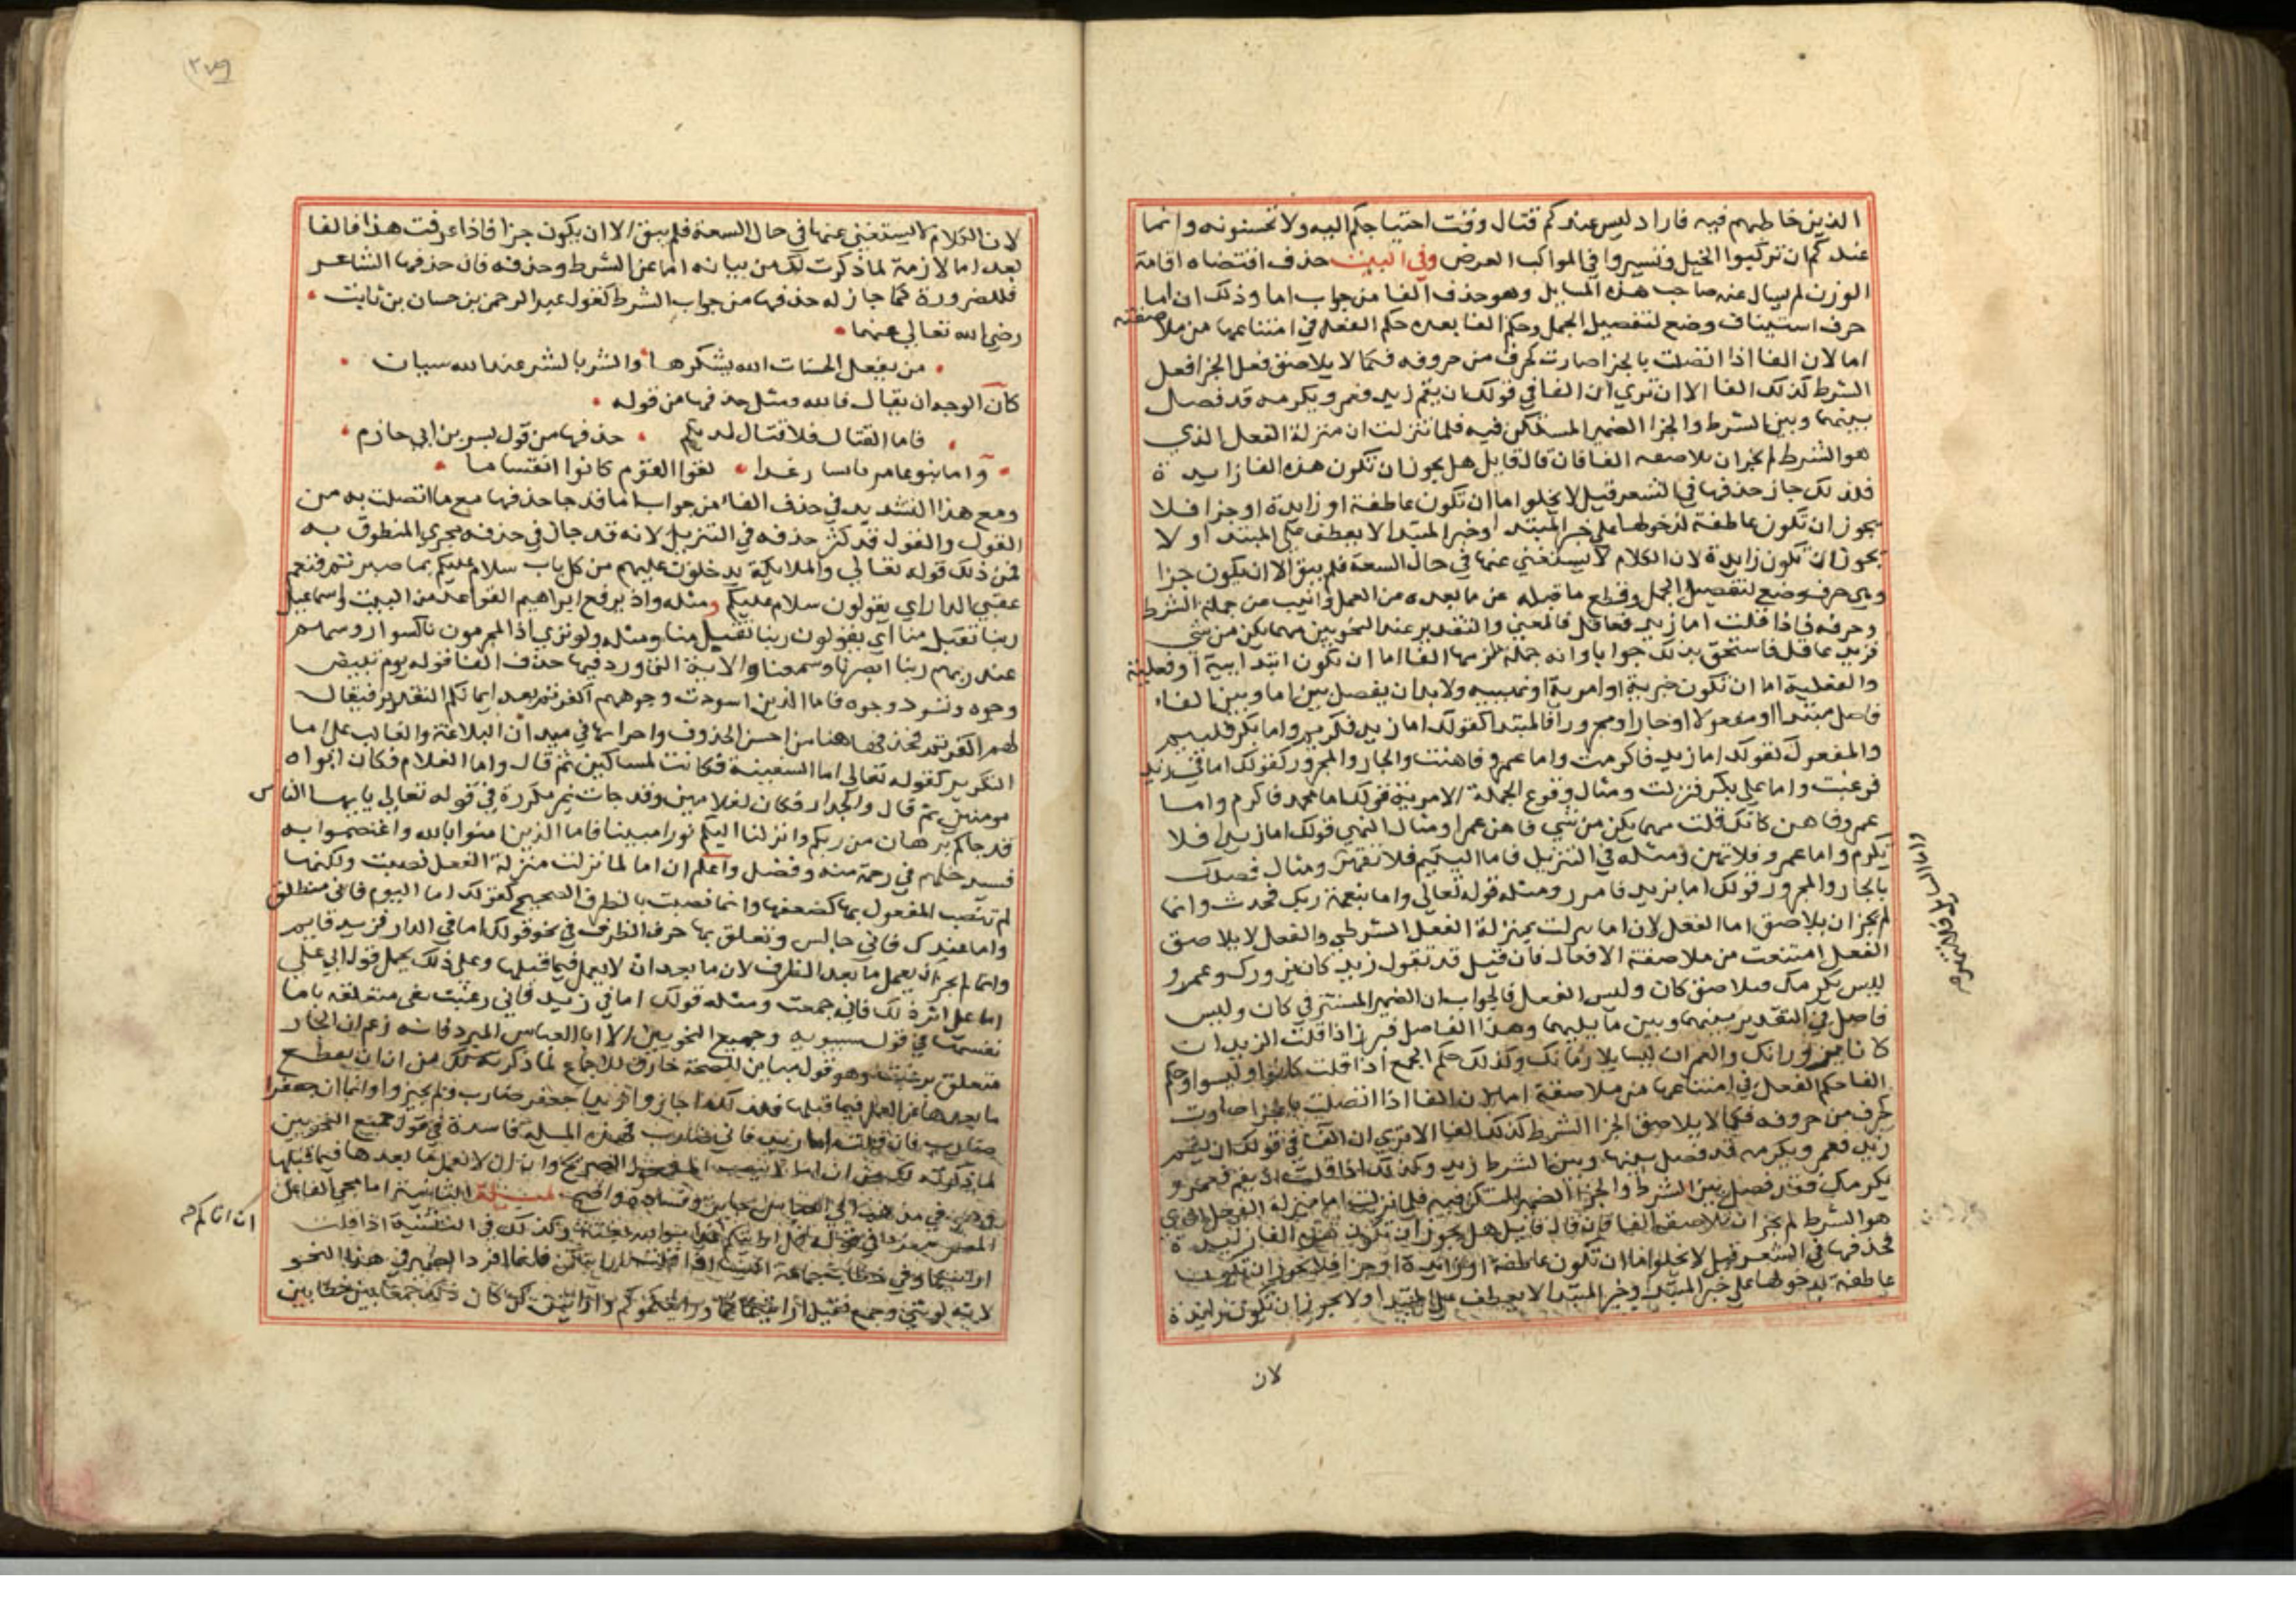 الذين خاطبهم فيه فاراد ليس عندكم قتال وقت احتياجكم اليه ولا تحسنونه وانما
عندكم ان تركبوا الخيل وتسيروا في المواكب العرض وفي البيت حذف اقتضاه اقامة
الوزن لم يسال عنه صاحب هذه المسايل وهو حذف الفا من جواب اما وذلك ان اما
حرف استيناف وضع لتفصيل الجمل وحكم الفا بعده حكم الفعل في امتناعها من ملاصقته
اما لان الفا اذا اتصلت بالجزا صارت كحرف من حروفه فكما لا يلاصق فعل الجزا فعل
الشرط كذلك الفا الا ان تري ان الفا في قولك ان يقم زيد فعمرو يكرمه قد فصل
بينها وبين الشرط والجزا الضمير المستكن فيه فلما تنزلت اما منزلة الفعل الذي
هو الشرط لم يجز ان تلاصقه الفا فان قال قايل هل يجوز ان تكون هذه الفا زايدة
فلذلك جاز حذفها في الشعر قيل لا يخلوا اما ان تكون عاطفة او زايدة او جزا فلا
يجوز ان تكون عاطفة لدخولها علي خبر المبتدا وخبر المبتدا لا يعطف علي المبتدا ولا
يجوز ان تكون زايدة لان الكلام لا يستغني عنها في حال السعة فلم يبق الا ان يكون جزا
وهي حرف وضع لتفصيل الجمل وقطع ما قبله عن ما بعده من العمل وانيب من جملة الشرط
وحرفه فاذا قلت اما زيد فعاقل فالمعني والتقدير عند النحويين مهما يكن من شي
فزيد عاقل فاستحق بذلك جوابا وانه جملة تلزمها الفا اما ان تكون ابتدايية او فعلية
والفعلية اما ان تكون خبرية او امرية او نهييه ولا بد ان يفصل بين اما وبين الفاء
فاصل مبتدا او مفعولا او جارا ومجرورا فالمبتدا كقولك اما زيد فكريم واما بكر فلييم
والمفعول كقولك اما زيد فاكرمت واما عمرو فاهنت والجار والمجرور كقولك اما في زيد
فرغبت واما علي بكر فنزلت ومثال وقوع الجملة الامرية قولك اما محمد فاكرم واما
عمرو فاهن كانك قلت مهما يكن من شي فاهن عمرا ومثال النهي قولك اما زيدا فلا
تكرم واما عمرو فلا تهن ومثله في التنزيل فاما اليتيم فلا تقهر ومثال فصلك
واما السايل فلا تنهر صح
بالجار والمجرور قولك اما بزيد فامرر ومثله قوله تعالي واما بنعمة ربك فحدث وانما
لم يجز ان يلاصق اما الفعل لان اما نزلت بمنزلة الفعل الشرطي والفعل لا يلاصق
الفعل امتنعت من ملاصقة الافعال فان قيل قد تقول زيد كان يزورك وعمرو
ليس يكرمك فيلاصق كان وليس الفعل فالجواب ان الضمير المستتر في كان وليس
فاصل في التقدير بينهما وبين ما يليهما وهذا الفاصل يبرز اذا قلت الزيدان
كانا يزورانك والعمران ليسا يلازمانك وكذلك حكم الجمع اذا قلت كانوا وليسوا وحكم
الفا حكم الفعل في امتناعها من ملاصقة اما لان الفا اذا اتصلت بالجزا صارت
كحرف من حروفه فكما لا يلاصق الجزا الشرط كذلك الفا الا تري ان الفا في قولك ان يقم
زيد فعمرو يكرمه قد فصل بينها وبين الشرط زيد وكذلك اذا قلت ان يقم فعمرو
يكرمك فقد فصل بين الشرط والجزا الضمير المستكن فيه فلما نزلت اما منزلة الفعل الذي
هو الشرط لم يجز ان تلاصقه الفا فان قال قايل هل يجوز ان تكون هذه الفا زايدة
فحذفها في الشعر قيل لا يخلوا اما ان تكون عاطفة او زايدة او جزا فلا يجوز ان تكون
عاطفة لدخولها علي خبر المبتدا وخبر المبتدا لا يعطف علي المبتدا ولا يجوز ان تكون زايدة
لان
لان الكلام لا يستغني عنها في حال السعة فلم يبق الا ان يكون جزا فاذا عرفت هذا فالفا
بعد اما لازمة لما ذكرت لك من بيانه اما عن الشرط وحذفه فان حذفها الشاعر
فللضرورة كما جاز له حذفها من جواب الشرط كقول عبد الرحمن بن حسان بن ثابت
رضي الله تعالي عنهما
من يفعل الحسنات الله يشكرها والشر بالشر عند الله سيان
كان الوجه ان يقال فالله ومثل حذفها من قوله
فاما القتال فلا قتال لديكم حذفها من قول بسر بن ابي حازم
واما بنو عامر بالنسا رغدا لقوا القوم كانوا انقساما
ومع هذا التشديد في حذف الفاء من جواب اما قد جا حذفها مع ما اتصلت به من
القول والقول قد كثر حذفه في التنزيل لانه قد جاز في حذفه مجري المنطوق به
فمن ذلك قوله تعالي والملايكة يدخلون عليهم من كل باب سلام عليكم بما صبرتم فنعم
عقبي الدار اي يقولون سلام عليكم ومثله واذ يرفع ابراهيم القواعد من البيت واسماعيل
ربنا تقبل منا اي يقولون ربنا تقبل منا ومثله ولو تري اذ المجرمون ناكسوا روسهم
عند ربهم ربنا ابصرنا وسمعنا والاية التي ورد فيها حذف الفا قوله يوم تبيض
وجوه وتسود وجوه فاما الذين اسودت وجوههم اكفرتم بعد ايمانكم التقدير فيقال
لهم اكفرتم فحذفها هنا من احسن الحذوف واجراها في ميدان البلاغة والغالب علي اما
التكرير كقوله تعالي اما السفينة فكانت لمساكين ثم قال واما الغلام فكان ابواه
مومنين ثم قال واما الجدار فكان لغلامين وقد جات غير مكررة في قوله تعالي يا يها الناس
قد جاكم برهان من ربكم وانزلنا اليكم نورا مبينا فاما الذين امنوا بالله واعتصموا به
فسيدخلهم في رحمة منه وفضل واعلم ان اما لما نزلت منزلة الفعل نصبت ولكنها
لم تنصب المفعول بها كضعفها وانما نصبت بالظرف الصحيح كقولك اما اليوم فاني منطلق
واما عندك فاني جالس وتعلق بها حرف الظرف في نحو قولك اما في الدار فزيد قايم
وانما لم يجز ان يعمل ما بعد الظرف لان ما بعد ان لا يعمل فيما قبلها وعلي ذلك يحمل قول ابي علي
اما علي اثر ذلك فاني جمعت ومثله قولك اما في زيد فاني رغبت ففي متعلقه باما
نفسها في قول سيبويه وجميع النحويين الا ابا العباس المبرد فانه زعم ان الجار
متعلق برغبت وهو قول مباين للصحة خارق للاجماع لما ذكرته لك من ان ان يقطع
ما بعدها عن العمل فيما قبلها فلذلك اجازوا زيدا جعفر ضارب ولم يجيزوا زيدا ان جعفرا
ضارب فان قلت اما زيد فاني ضارب فهذه المسلة فاسدة في قول جميع النحويين
لما ذكرته لك من ان اما لا تنصب المفعول الصريح وان ان لا يعمل ما بعدها فيما قبلها
وهو في مذهب ابي العباس جايز وفساده واضح لمسلة الثانية اما مجي الفاعل
المضمر مفردا في قوله قل ارايتكم ان اتاكم وكذلك في التثنية اذا قلت
ان اتاكم صح
لانه لو ثني وجمع فقيل ارايتماكما وارايتموكم وارايتن كن كان ذلك جمعا بين خطابين